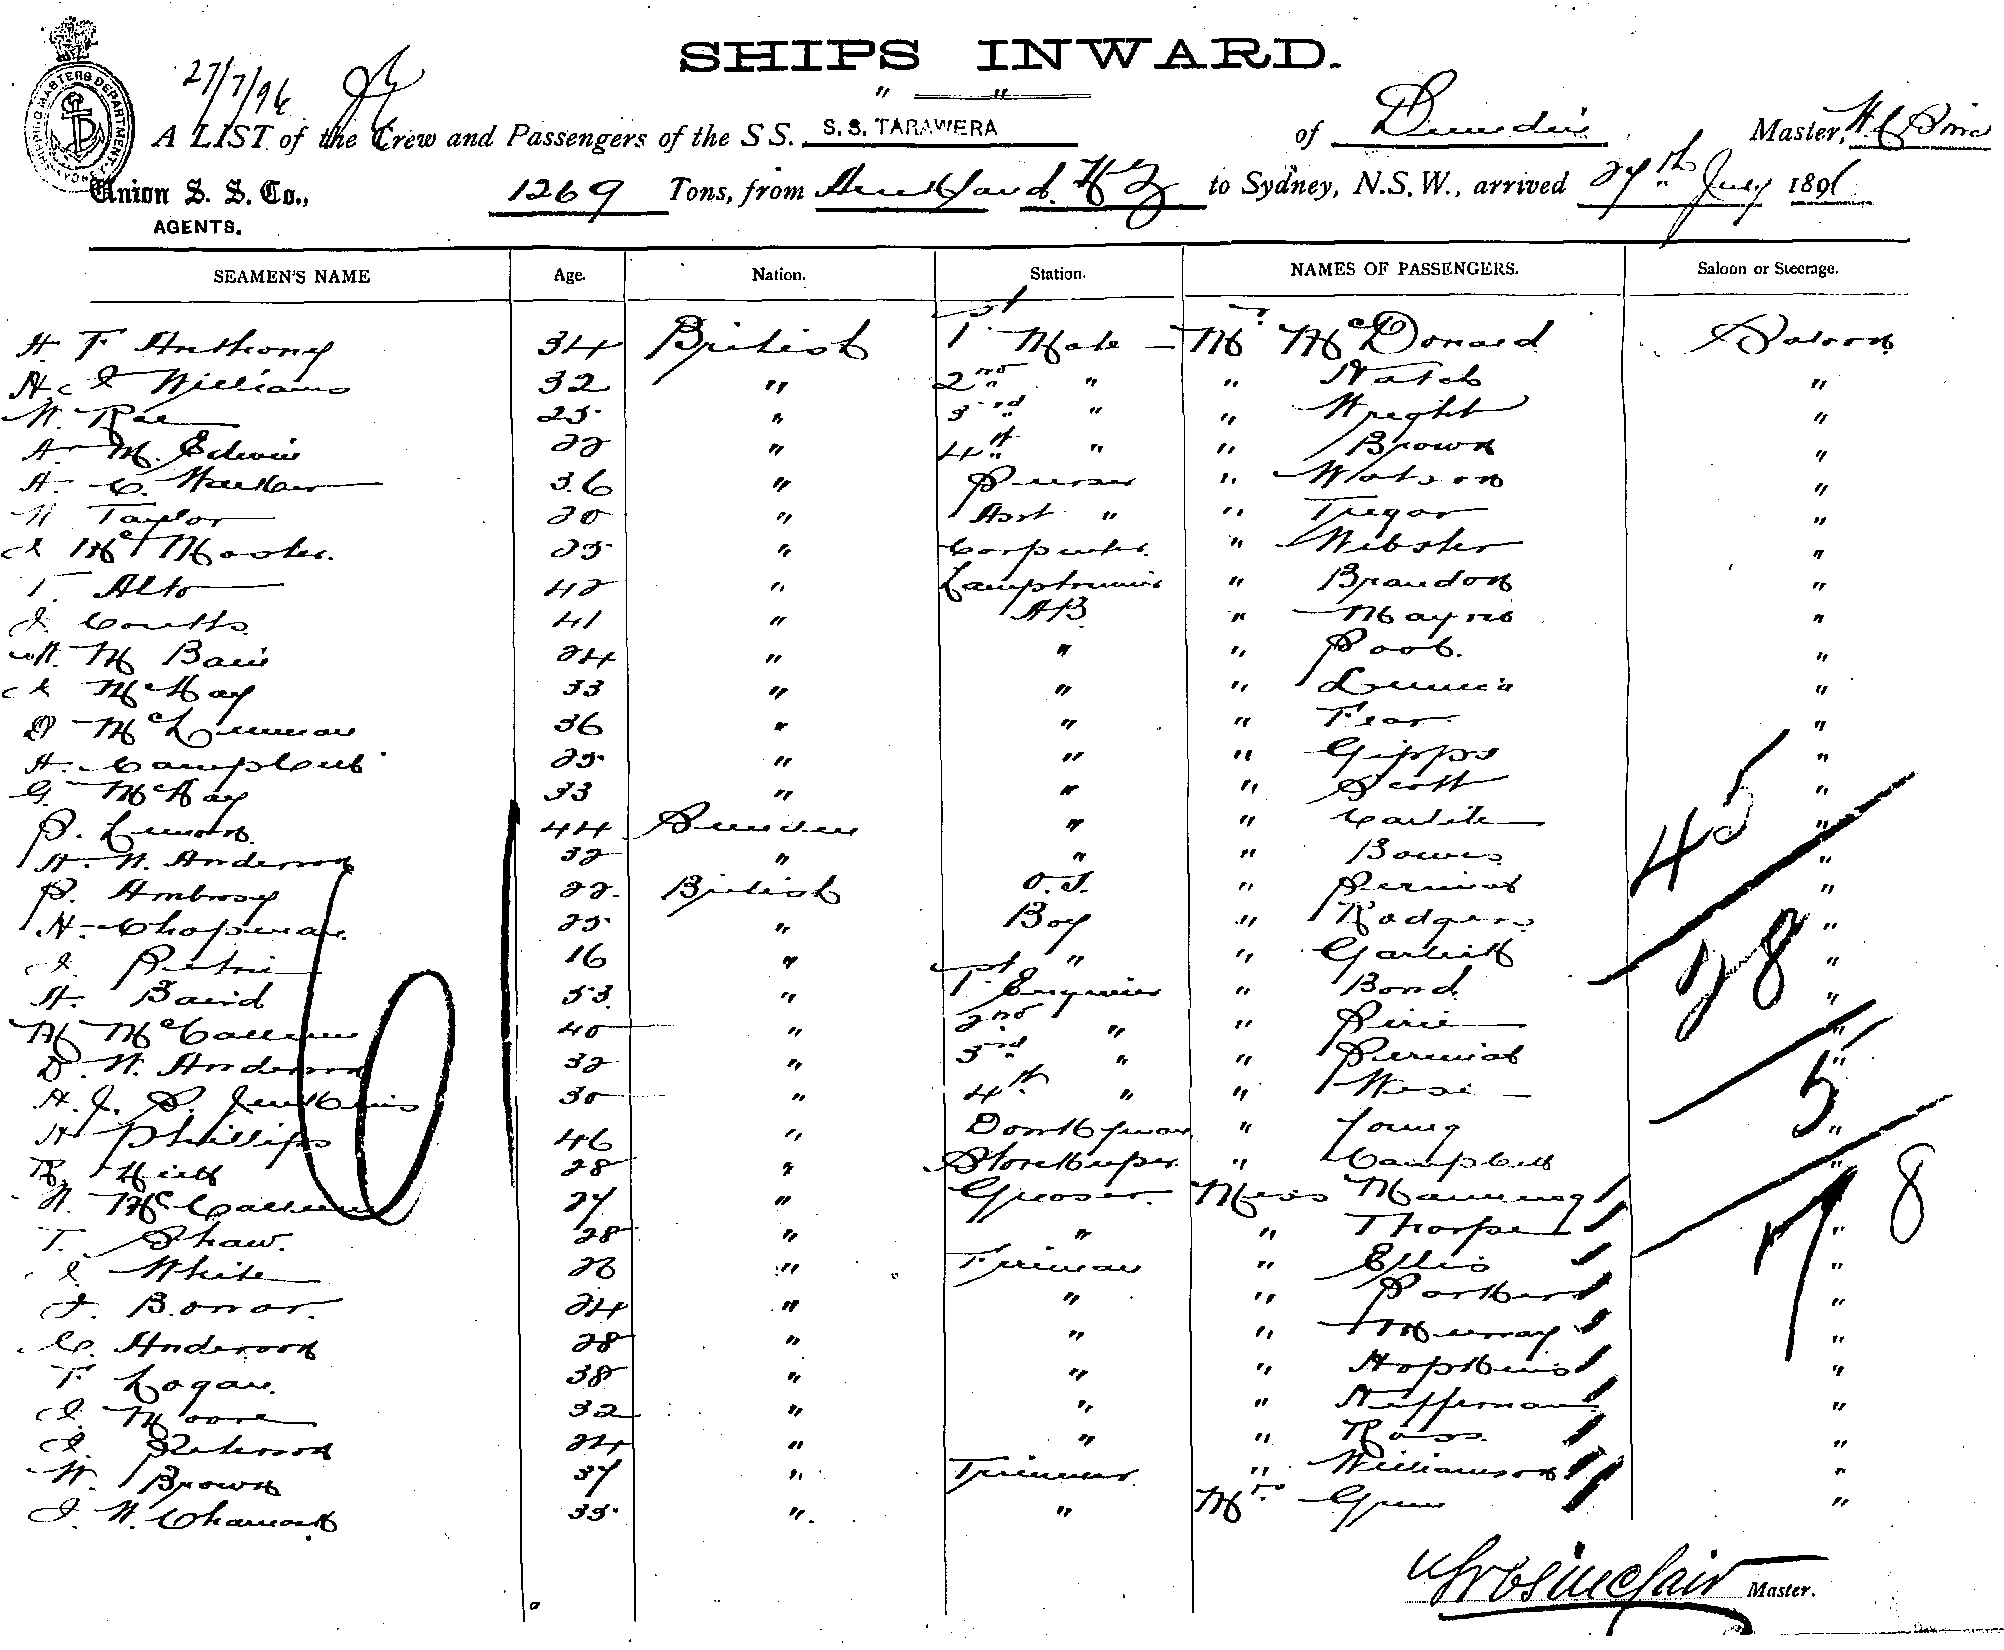 SHIPS INWARD.
27/7/96
A LIST of the Crew and Passengers of the SS. S. S. TARAWERA of Dunedin Master,
Union S. S. Co., 1269 Tons, from Auckland. N Z to Sydney, N.S.W., arrived 27th July 1896
AGENTS.
SEAMEN'S NAME Age. Nation. Station. NAMES OF PASSENGERS. Saloon or Steerage.
H F Anthony 34 British 1st Mate Mr McDonald Saloon
Williams 32 " 2nd " " "
W. Rae 25 " 3rd " " Wright "
A M. Edwin 22 " 4th " " Brown "
A. C. Walker 36 " Purser " Watson "
W Taylor 20 " Asst " " Tregar "
J McMaster. 25 " Carpenter. " Webster "
T. Alto 42 " Lamptrimmer " Brandon "
J. Coutts 41 " AB " Mayne "
M Bain 24 " " " "
J McKay 33 " " " "
D McLennan 36 " " " Fear "
A. Campbell 25 " " " Gipps "
G. McKay 33 " " " Scott "
P. 44 Sweden " " Carlile "
A. W. Anderson 32 " " " Bowes "
P. Ambrose 22 British O.S. " Percival "
H. Chapman 25 " Boy " Rodgers "
J. Petrie 16 " " " Garlick "
A. Baird 53 " 1st Engineer " Bond "
M McCallum 40 " 2nd " " Pirie "
D. W. Anderson 32 " 3rd " " Percival "
A. J. S. Jenkins 30 " 4th " " "
A Phillips 46 " Donkeyman " Young "
R. 28 " Storekeeper " Campbell "
N. McCallum 27 " Greaser. Miss Manning "
T. Shaw. 28 " " " Thorpe "
J. White 26 " Fireman " Ellis "
J. Bonar. 24 " " " Parker "
C. Anderson 28 " " " Murray "
T Logan. 38 " " " Hopkins "
J. Moore 32 " " " Heffernan "
J. Peterson 24 " " " Ross. "
W. Brown 37 " Trimmer " Williamson "
J. W. 35 " " Mr Green "
45
28
5
78
Sinclair Master.